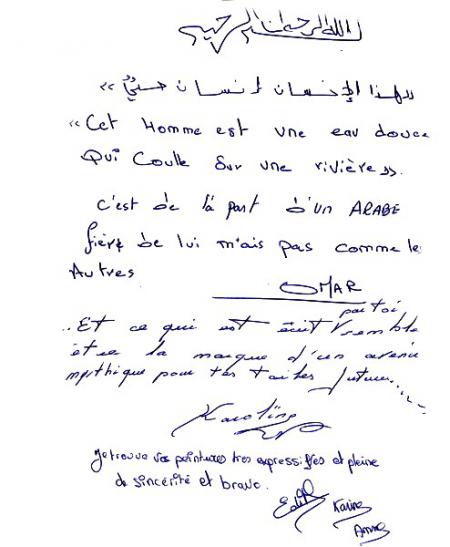 الله الرحمن الرحيم
« هذا الإنسان إنسان »
« Cet Homme est une eau douce
Qui Coulle Sur une rivière ».
c'est de là part d'un ARABE
fière de lui m'ais pas comme le
Autres
OMAR
..Et ce qui est écrit par toi semble
être la marque d'un avenir
mythique pour tes toiles futures.....
Karoline
Je trouve vos peintures tres expressiffes et pleine
de sincérité et bravo.
Edith
Karine
Anne